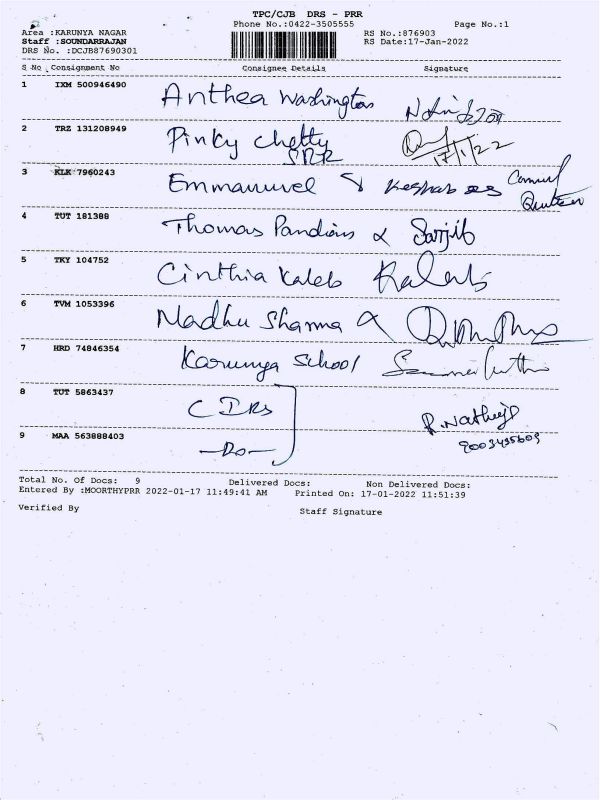 TPC/CJB DRS - PRR
Phone No.:0422-3505555 Page No.:1
Area :KARUNYA NAGAR RS No.:876903
Staff :SOUNDARRAJAN RS Date:17-Jan-2022
DRS No. :DCJB87690301
S No Consignment No Consignee Details Signature
1 IXM 500946490 Anthea Washington
2 TRZ 131208949 Pinky Chetty
SRR 17/1/22
3 KLK 7960243 Emmanuvel &
4 TUT 181388 Thomas Pandian & Sanjib
5 TKY 104752 Cinthia Kaleb Kaleb
6 TVM 1053396 Madhu Sharma
7 HRD 74846354 Karunya School
8 TUT 5863437 CDRs
9 MAA 563888403 -Do- 9003495609
Total No. Of Docs: 9 Delivered Docs: Non Delivered Docs:
Entered By :MOORTHYPRR 2022-01-17 11:49:41 AM Printed On: 17-01-2022 11:51:39
Verified By Staff Signature